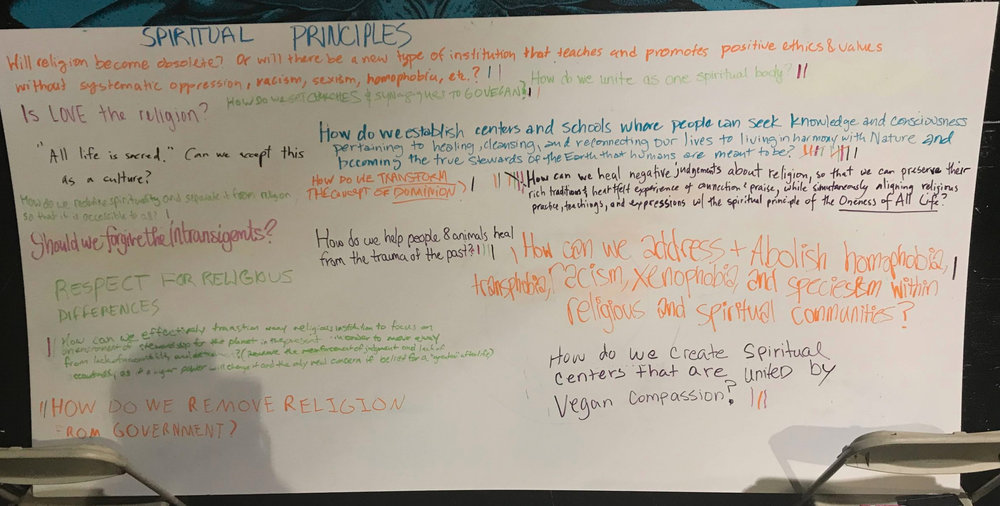 SPIRITUAL PRINCIPLES
Will religion become obsolete? Or will there be a new type of institution that teaches and promotes positive ethics & values
without systematic oppression, racism, sexism, homophobia, etc.?
How do we unite as one spiritual body?
HOW DO WE GET CHURCHES & SYNAGOGUES TO GO VEGAN?
Is LOVE the religion?
"All life is sacred." Can we accept this
as a culture?
How do we establish centers and schools where people can seek knowledge and consciousness
pertaining to healing, cleansing, and reconnecting our lives to living in harmony with Nature and
becoming the true stewards of the Earth that humans are meant to be?
HOW DO WE TRANSFORM
THE CONCEPT OF DOMINION?
How can we heal negative judgements about religion, so that we can preserve their
rich traditions & heartfelt experience of connection & praise, while simultaneously aligning religious
practice, teachings, and expressions w/ the spiritual principle of the Oneness of All Life?
How do we spirituality and separate it from religion
so that it is accessible to all?
Should we forgive the intransigents?
How do we help people & animals heal
from the trauma of the past?
How can we address + Abolish homophobia,
transphobia, racism, xenophobia, and speciesism within
religious and spiritual communities?
RESPECT FOR RELIGIOUS
DIFFERENCES
How can we effectively transition many religious institution to focus on
an environment of stewardship for the planet in the present in order to move away
from lack of accountability and ? ( because the reinforcement of judgment and lack of
as if a higher power will change it and the only real concern if belief for a "greater" afterlife)
HOW DO WE REMOVE RELIGION
FROM GOVERNMENT?
How do we create spiritual
centers that are united by
Vegan Compassion?